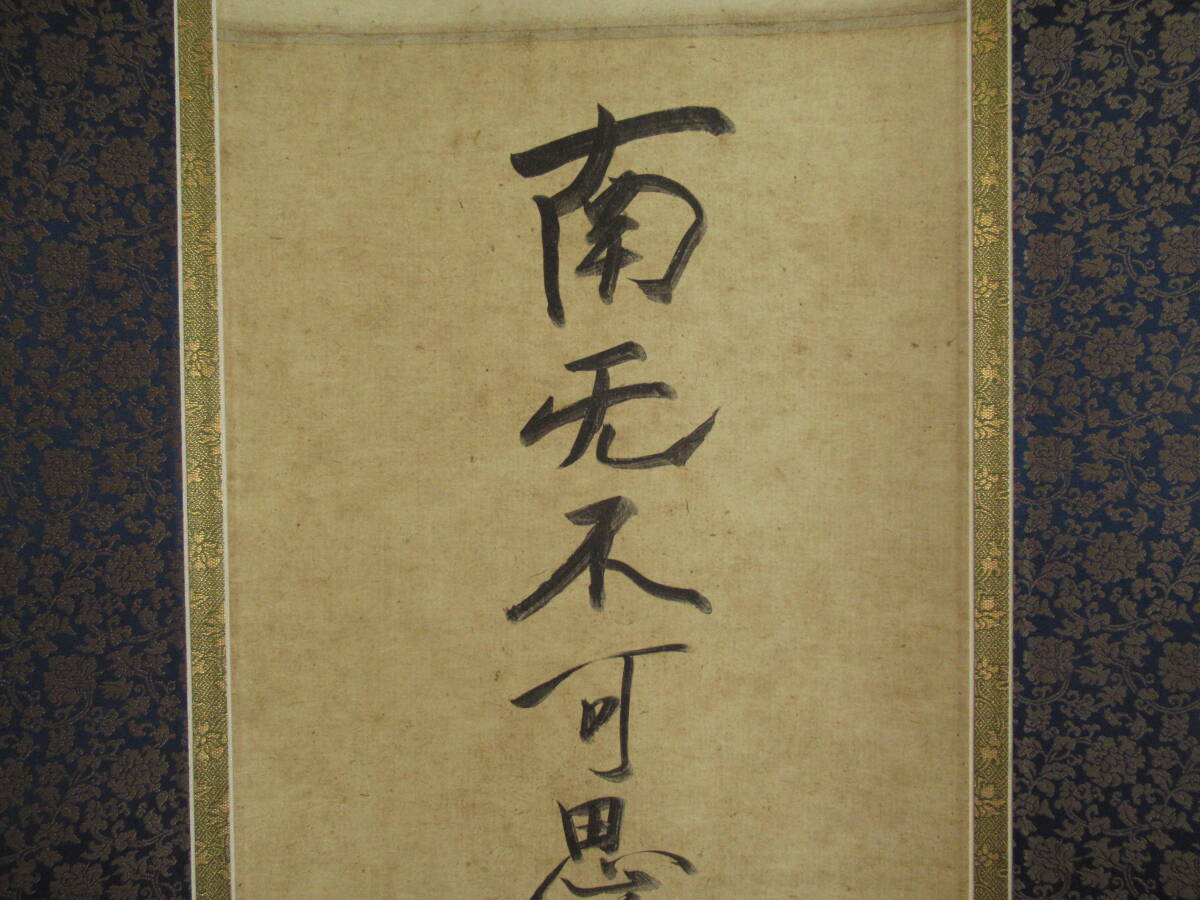 南无不可思